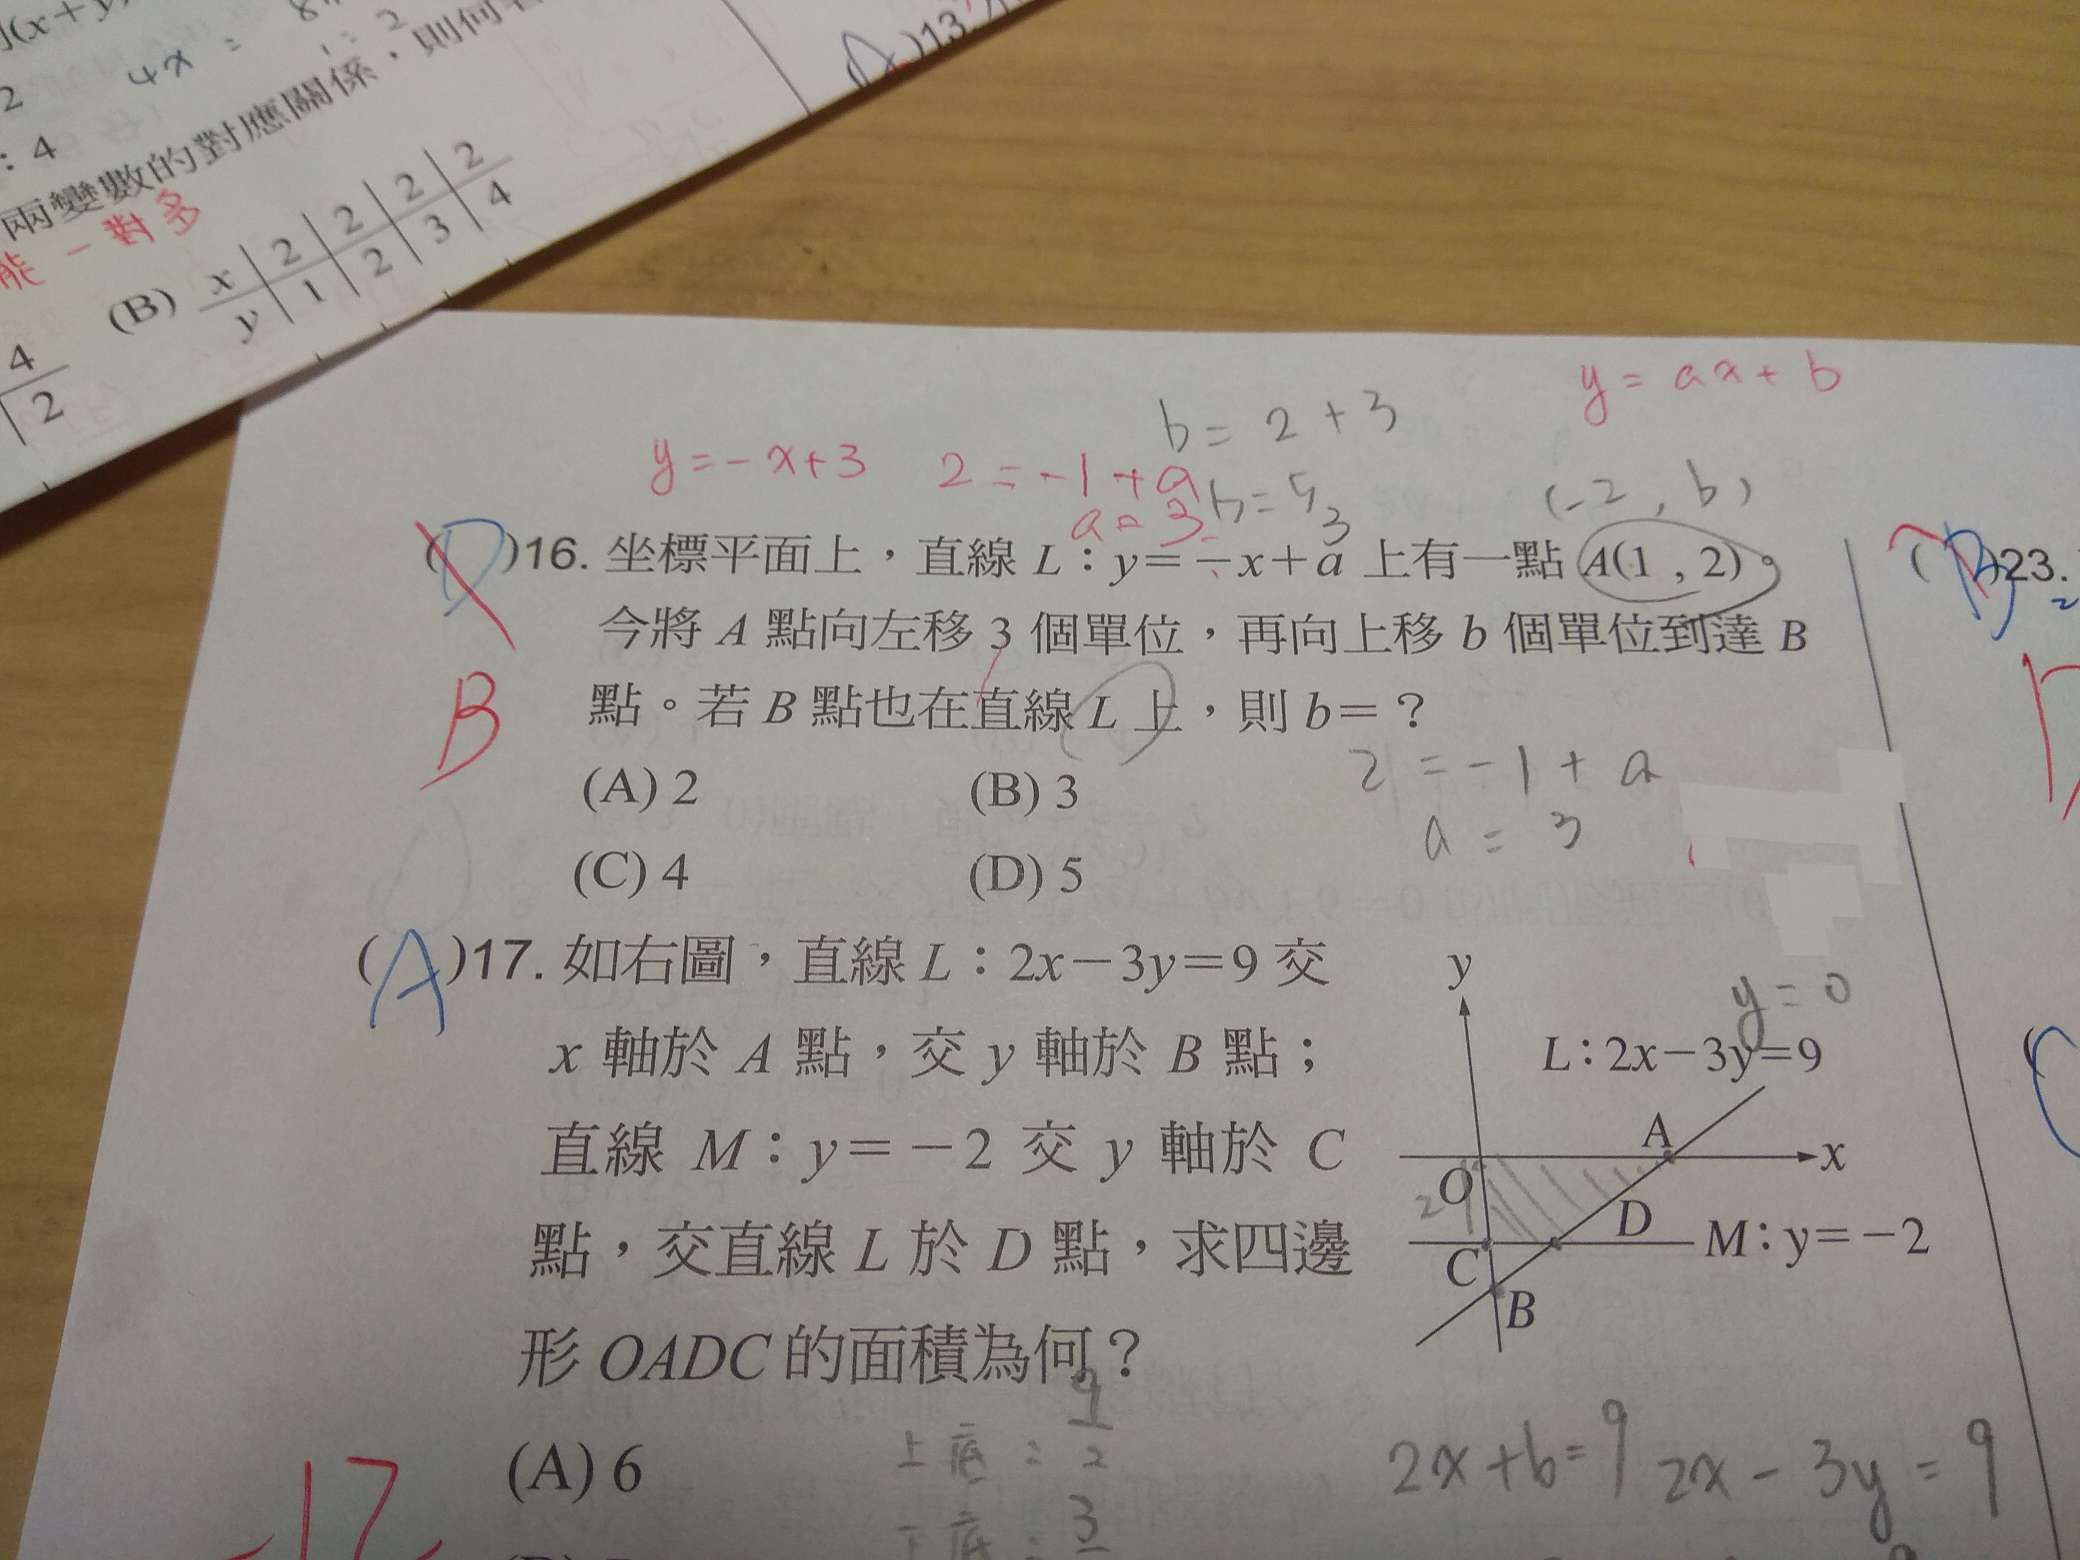 4x = 8
1:2
2
:4
兩變數的對應關係，則何
能一對多
(B) x 2 2 2 2
y 1 2 3 4
4
2
)13.
y=ax+b
b=2+3
y=-x+3 2=-1+a
a=3
b=5
3
(-2, b)
(D)16. 坐標平面上，直線 L：y=-x+a 上有一點 A(1 , 2)，
今將 A 點向左移 3 個單位，再向上移 b 個單位到達 B
點。若 B 點也在直線 L 上，則 b=？
B
(A) 2 (B) 3
(C) 4 (D) 5
2=-1+a
a=3
23.
(A)17. 如右圖，直線 L：2x-3y=9 交
x 軸於 A 點，交 y 軸於 B 點；
直線 M：y=-2 交 y 軸於 C
點，交直線 L 於 D 點，求四邊
形 OADC 的面積為何？
(A) 6
y
y=0
L：2x-3y=9
A
x
O
2
D
M：y=-2
C
B
上底：9
2
下底：3
2x+b=9 2x-3y=9
-17